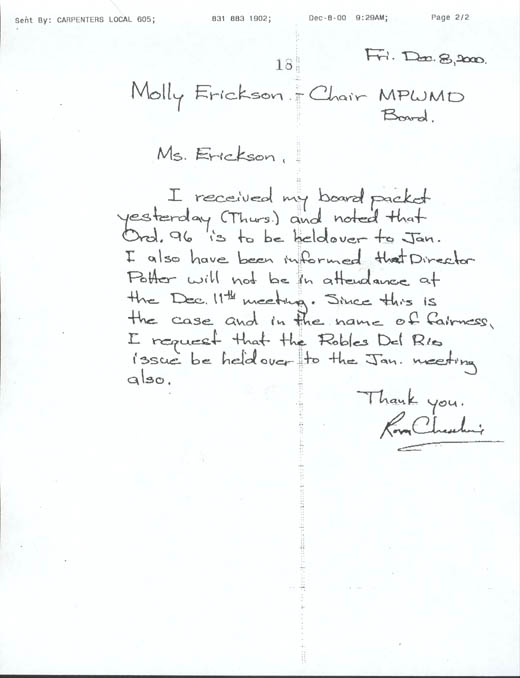 Sent By: CARPENTERS LOCAL 605; 831 883 1902; Dec-8-00 9:29AM; Page 2/2
Fri. Dec. 8, 2000.
18
Molly Erickson - Chair MPWMD
Board.
Ms. Erickson,
I received my board packet
yesterday (Thurs.) and noted that
Ord. 96 is to be heldover to Jan.
I also have been informed that Director
Potter will not be in attendance at
the Dec. 11th meeting. Since this is
the case and in the name of fairness,
I request that the Robles Del Rio
issue be heldover to the Jan. meeting
also.
Thank you.
Ron